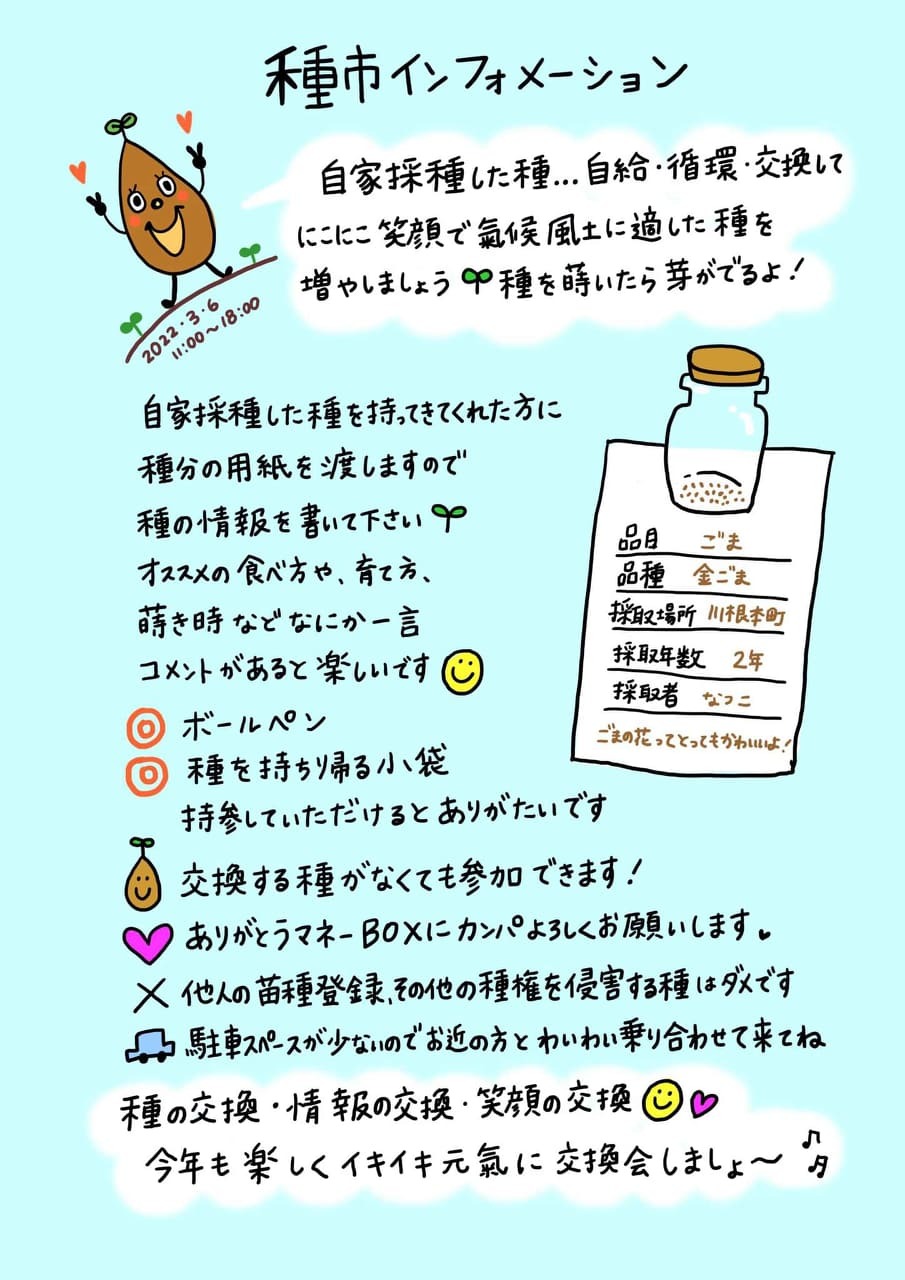 種市インフォメーション
自家採種した種...自給・循環・交換して
にこにこ笑顔で氣候風土に適した種を
増やしましょう種を蒔いたら芽がでるよ!
2022・3・6
11:00~18:00
自家採種した種を持ってきてくれた方に
種分の用紙を渡しますので
種の情報を書いて下さい
オススメの食べ方や、育て方、
蒔き時などなにか一言
コメントがあると楽しいです
品目 ごま
品種 金ごま
採取場所 川根本町
採取年数 2年
採取者 なつこ
ごまの花ってとってもかわいいよ!
◎ ボールペン
◎ 種を持ちり帰る小袋
持参していただけるとありがたいです
交換する種がなくても参加できます!
ありがとうマネーBOXにカンパよろしくお願いします。
× 他人の苗種登録、その他の種権を侵害する種はダメです
駐車スペースが少ないのでお近の方とわいわい乗り合わせて来てね
種の交換・情報の交換・笑顔の交換
今年も楽しくイキイキ元氣に交換会しましょ〜♪